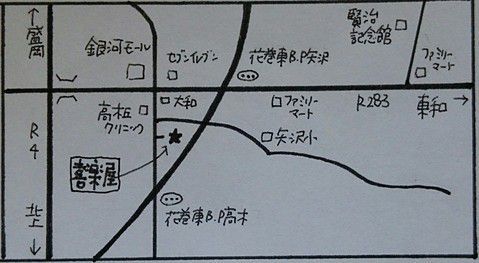 ↑盛岡
銀河モール
セブンイレブン
花巻東B.P矢沢
賢治
記念館
ファミリー
マート
高松
クリニック
大和
ファミリー
マート
R283
東和→
R4
矢沢小
喜楽屋
花巻東B.P高木
北上↓